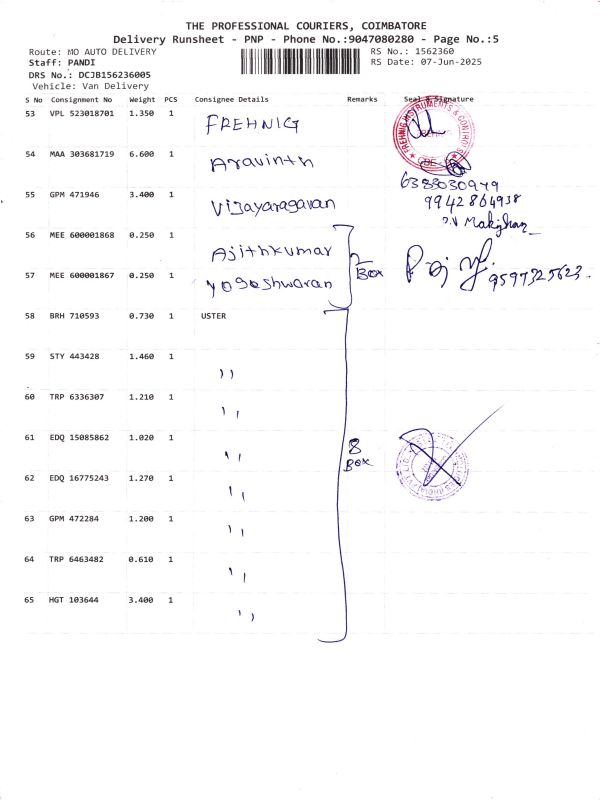 THE PROFESSIONAL COURIERS, COIMBATORE
Delivery Runsheet - PNP - Phone No.:9047080280 - Page No.:5
Route: MO AUTO DELIVERY RS No.: 1562360
Staff: PANDI RS Date: 07-Jun-2025
DRS No.: DCJB156236005
Vehicle: Van Delivery
S No Consignment No Weight PCS Consignee Details Remarks Seal & Signature
53 VPL 523018701 1.350 1 FREHNIG
FREHNIG INSTRUMENTS & CONTROLS
54 MAA 303681719 6.600 1 Aravinth
6383030949
55 GPM 471946 3.400 1 Vijayaragavan
9942864938
56 MEE 600001868 0.250 1 Ajithkumar
Box
9597325623
57 MEE 600001867 0.250 1 Yogeshwaran
58 BRH 710593 0.730 1 USTER
59 STY 443428 1.460 1 ,,
60 TRP 6336307 1.210 1 ,,
61 EDQ 15085862 1.020 1 ,,
8
Box
62 EDQ 16775243 1.270 1 ,,
63 GPM 472284 1.200 1 ,,
64 TRP 6463482 0.610 1 ,,
65 HGT 103644 3.400 1 ,,